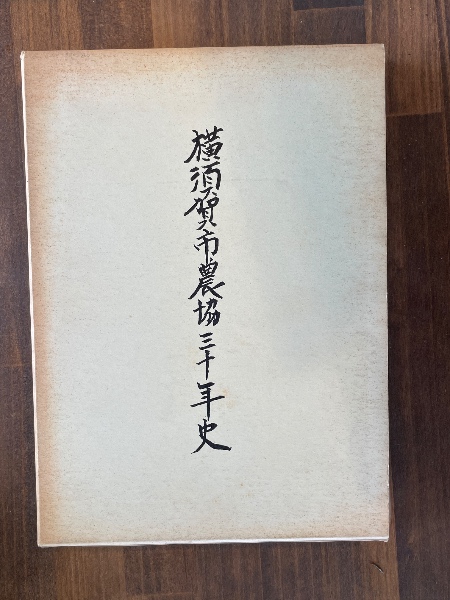 横須賀市農協三十年史